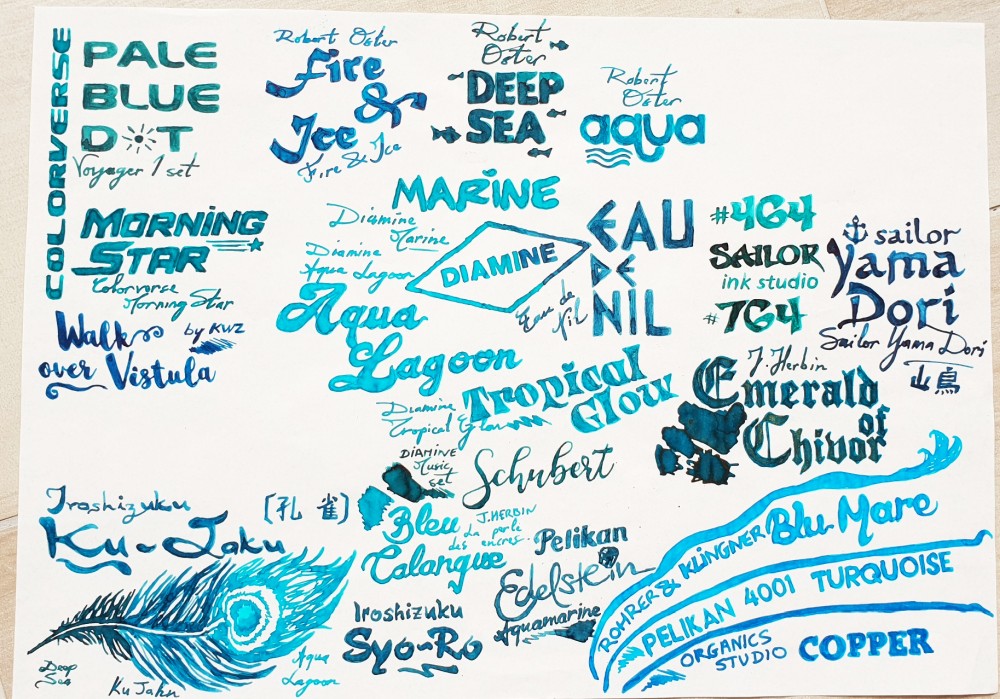 COLORVERSE
PALE
BLUE
DOT
Voyager 1 set
MORNING
STAR
Colorverse
Morning Star
Walk
by KWZ
over Vistula
Robert Oster
Fire
&
Ice
Fire & Ice
Robert
Oster
DEEP
SEA
Robert
Oster
aqua
MARINE
Diamine
Marine
DIAMINE
Diamine
Aqua Lagoon
Aqua
Lagoon
EAU
DE
NIL
Eau de
Nil
#464
SAILOR
ink studio
#764
sailor
Yama
Dori
Sailor Yama Dori
山鳥
Tropical
Glow
Diamine
Tropical Glow
J. Herbin
Emerald
of
Chivor
DIAMINE
Music
set
Schubert
Iroshizuku
[孔雀]
Ku-Jaku
Deep
Sea
Ku Jahn
Aqua
Lagoon
Bleu
J. HERBIN
La perle
des encres
Calanque
Iroshizuku
Syo-Ro
Pelikan
Edelstein
Aquamarine
ROHRER & KLINGNER Blu Mare
PELIKAN 4001 TURQUOISE
ORGANICS
STUDIO
COPPER